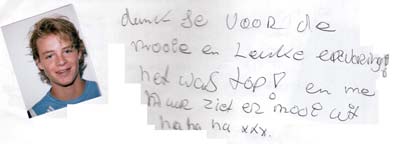 denck je voor de
mooie en Leuke ervaring!
het was top! en me
haar ziet er mooi uit
ha ha ha xxx.